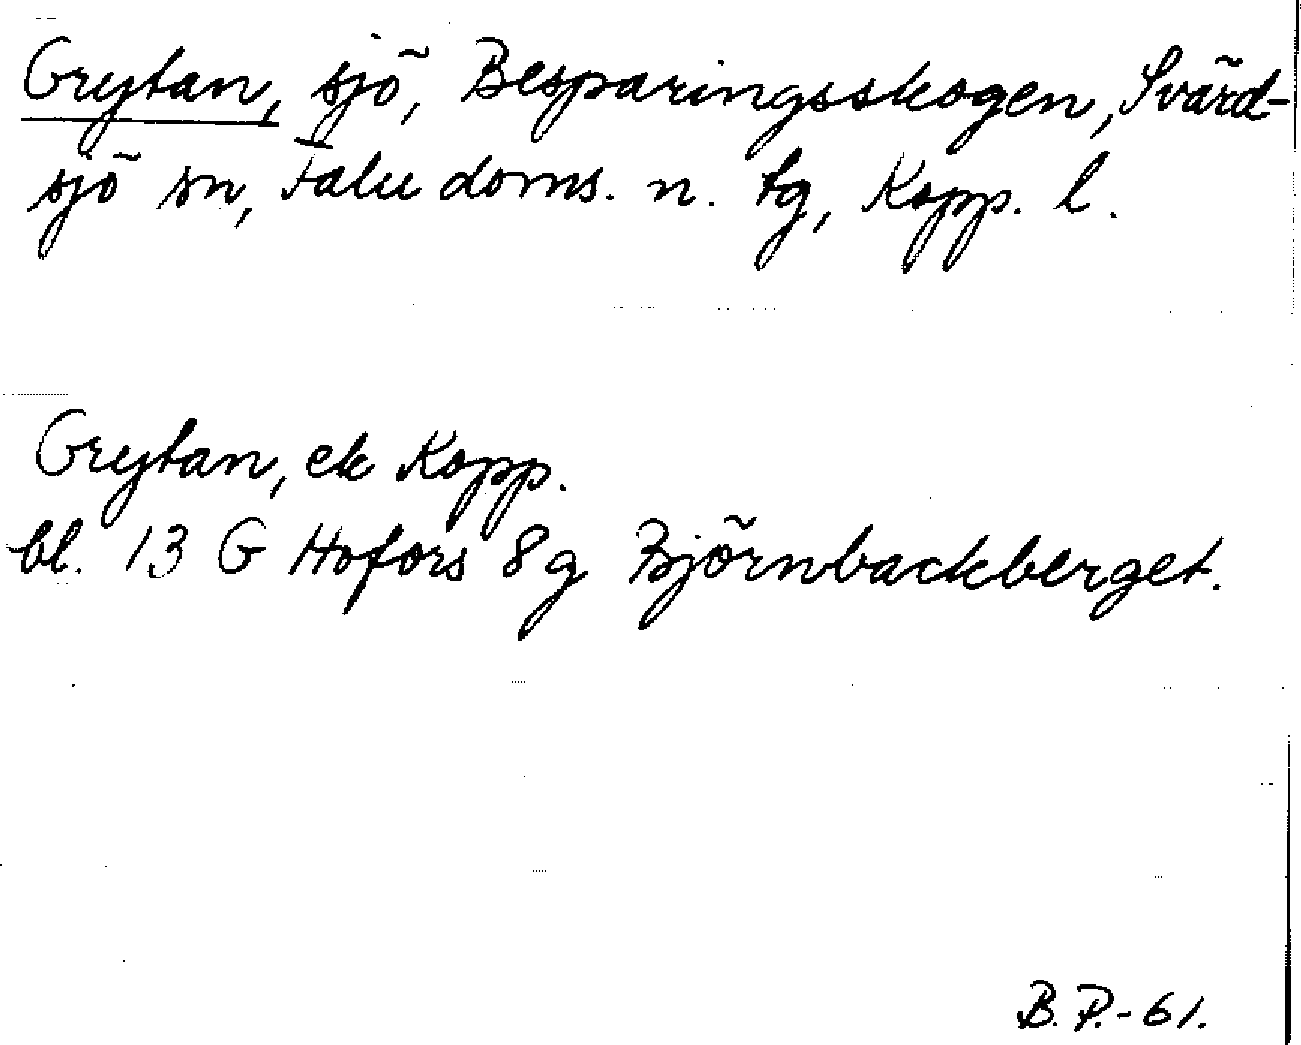 Grytan, sjö, Besparingsskogen, Svärd-
sjö sn, Falu doms. n. tg, Kopp. l.
Grytan, ek Kopp.
bl. 13 G Hofors 8g Björnbackberget.
B.P.-61.